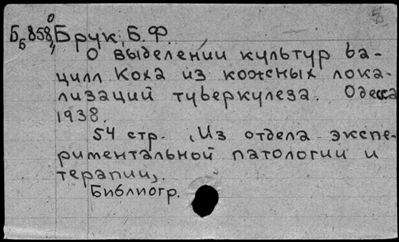 Б₆858₀ Брук, Б.Ф.
О выделении культур ба-
цилл Коха из кожных лока-
лизаций туберкулеза. Одесса
1938.
54 стр. (Из отдела экспе-
риментальной патологии и
терапии).
Библиогр.